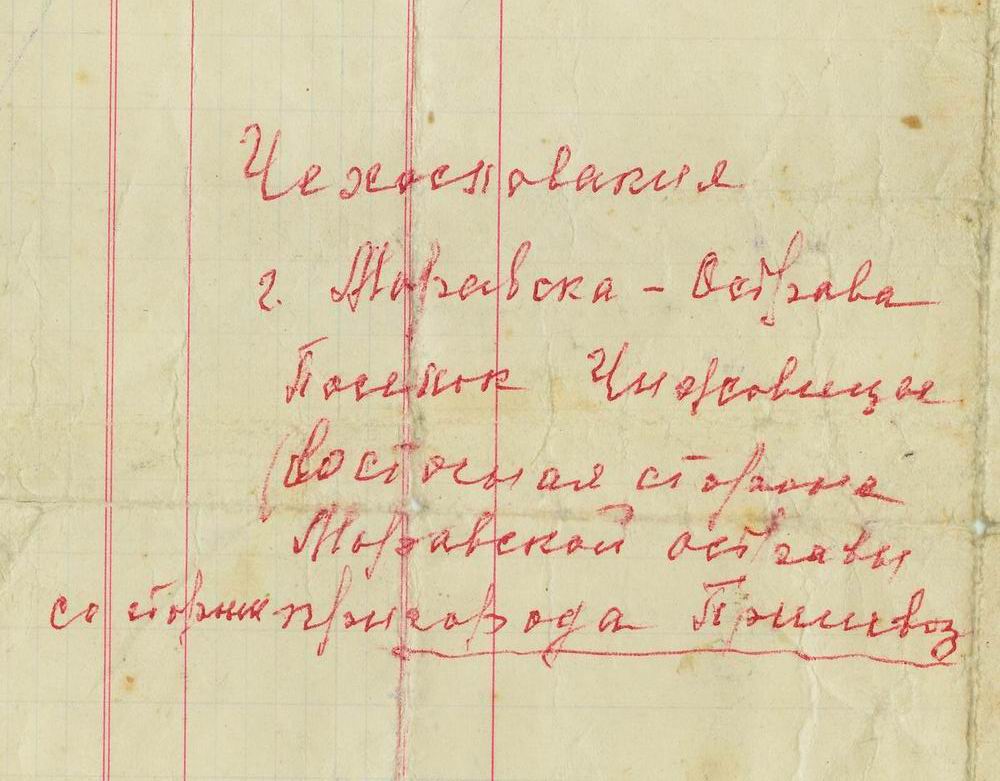 Чехословакия
г. Моравска - Острава
Поселок
(восточная сторона
Моравской остравы
со стороны пригорода Пришвоз